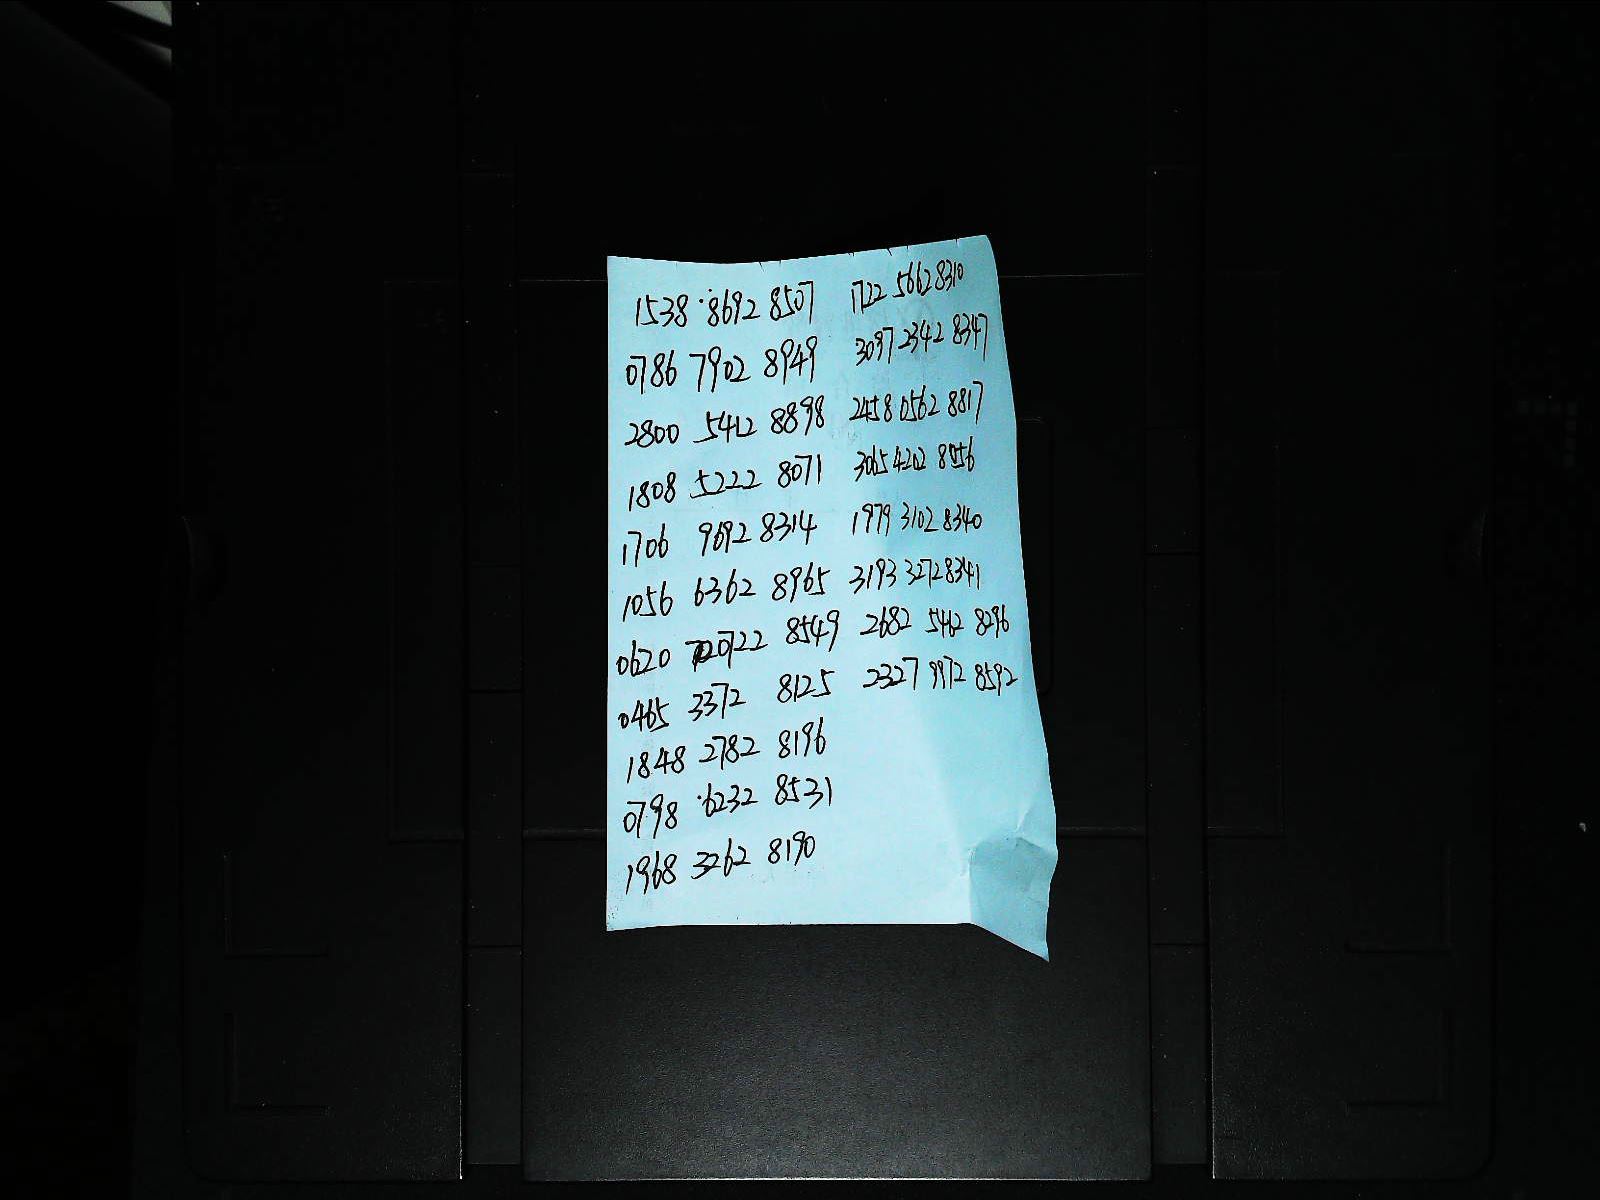 1538 8692 8507 1722 5662 8310
0786 7902 8949 3097 2342 8347
2800 5412 8898 2458 0562 8817
1808 5222 8071 3065 4202 8056
1706 9692 8314 1979 3102 8340
1056 6362 8965 3193 3272 8341
0620 0722 8549 2682 5462 8296
0465 3372 8125 2327 9972 8592
1848 2782 8196
0798 6232 8531
1968 3262 8190